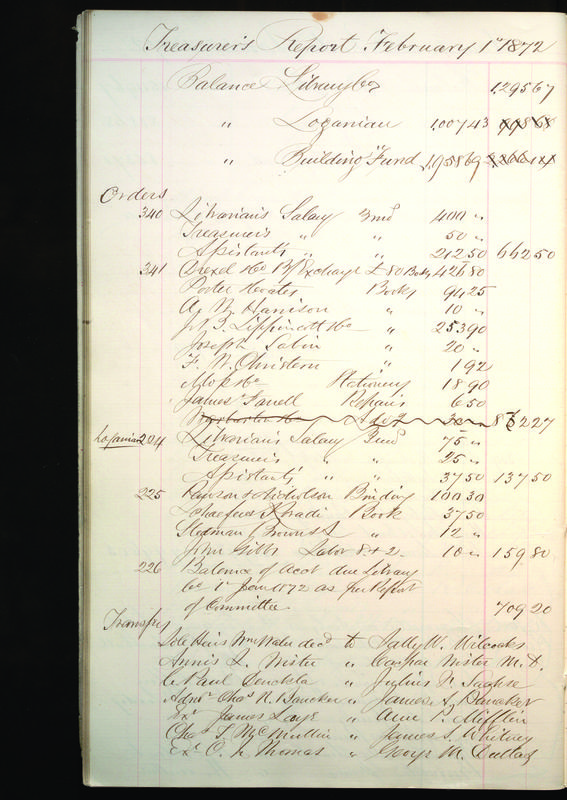 Treasurer's Report February 1st 1872
Balance Library Co 1,295 67
" Loganian 1,007 43
" Building Fund 1,958 69
Orders
340 Librarian's Salary 2md 400 "
Treasurer's " " 50 "
Assistants " " 212 50 662 50
341 Drexel & Co Bf Exchange £80 Books 426 80
Porter & Coates Books 94 25
A. B. Harrison " 10 "
J. B. Lippincott & Co " 253 90
Joseph Sabin " 20 "
F. W. Christern " 1 92
Stationery 18 90
James Farrell Repairs 6 50
827 227
Loganian 224 Librarian's Salary 2md 75 "
Treasurer's " " 25 "
Assistants " " 37 50 137 50
225 Pawson & Nicholson Binding 100 30
Schaefer & Koradi Book 37 50
Stedman Brown & L " 12 "
John Gibbs Labor 8 & 2 10 " 159 80
226 Balance of Acct due Library
Co 1st Jan 1872 as per Report
of Committee 709 20
Transfers
decd to Sally W. Wilcocks
Annis L. Wister " Caspar Wister M.D.
C. Paul " Julius F. Sachse
Admr Chas N. Bancker " James A. Bancker
Exr James " Ann P. Mifflin
Chas L. McMullin " James S. Whitney
Exr O. Thomas " George M. Dallas